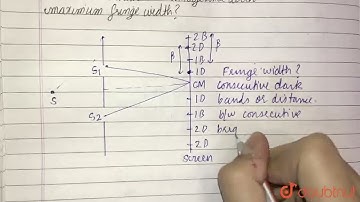 maximum fringe width?
2B
2D
B
1B
1D
CM
1D
1B
2D
2D
Screen
S1
S
S2
β
β
Fringe width?
consecutive dark
bands or distance.
b/w consecutive
brig
doubtnut